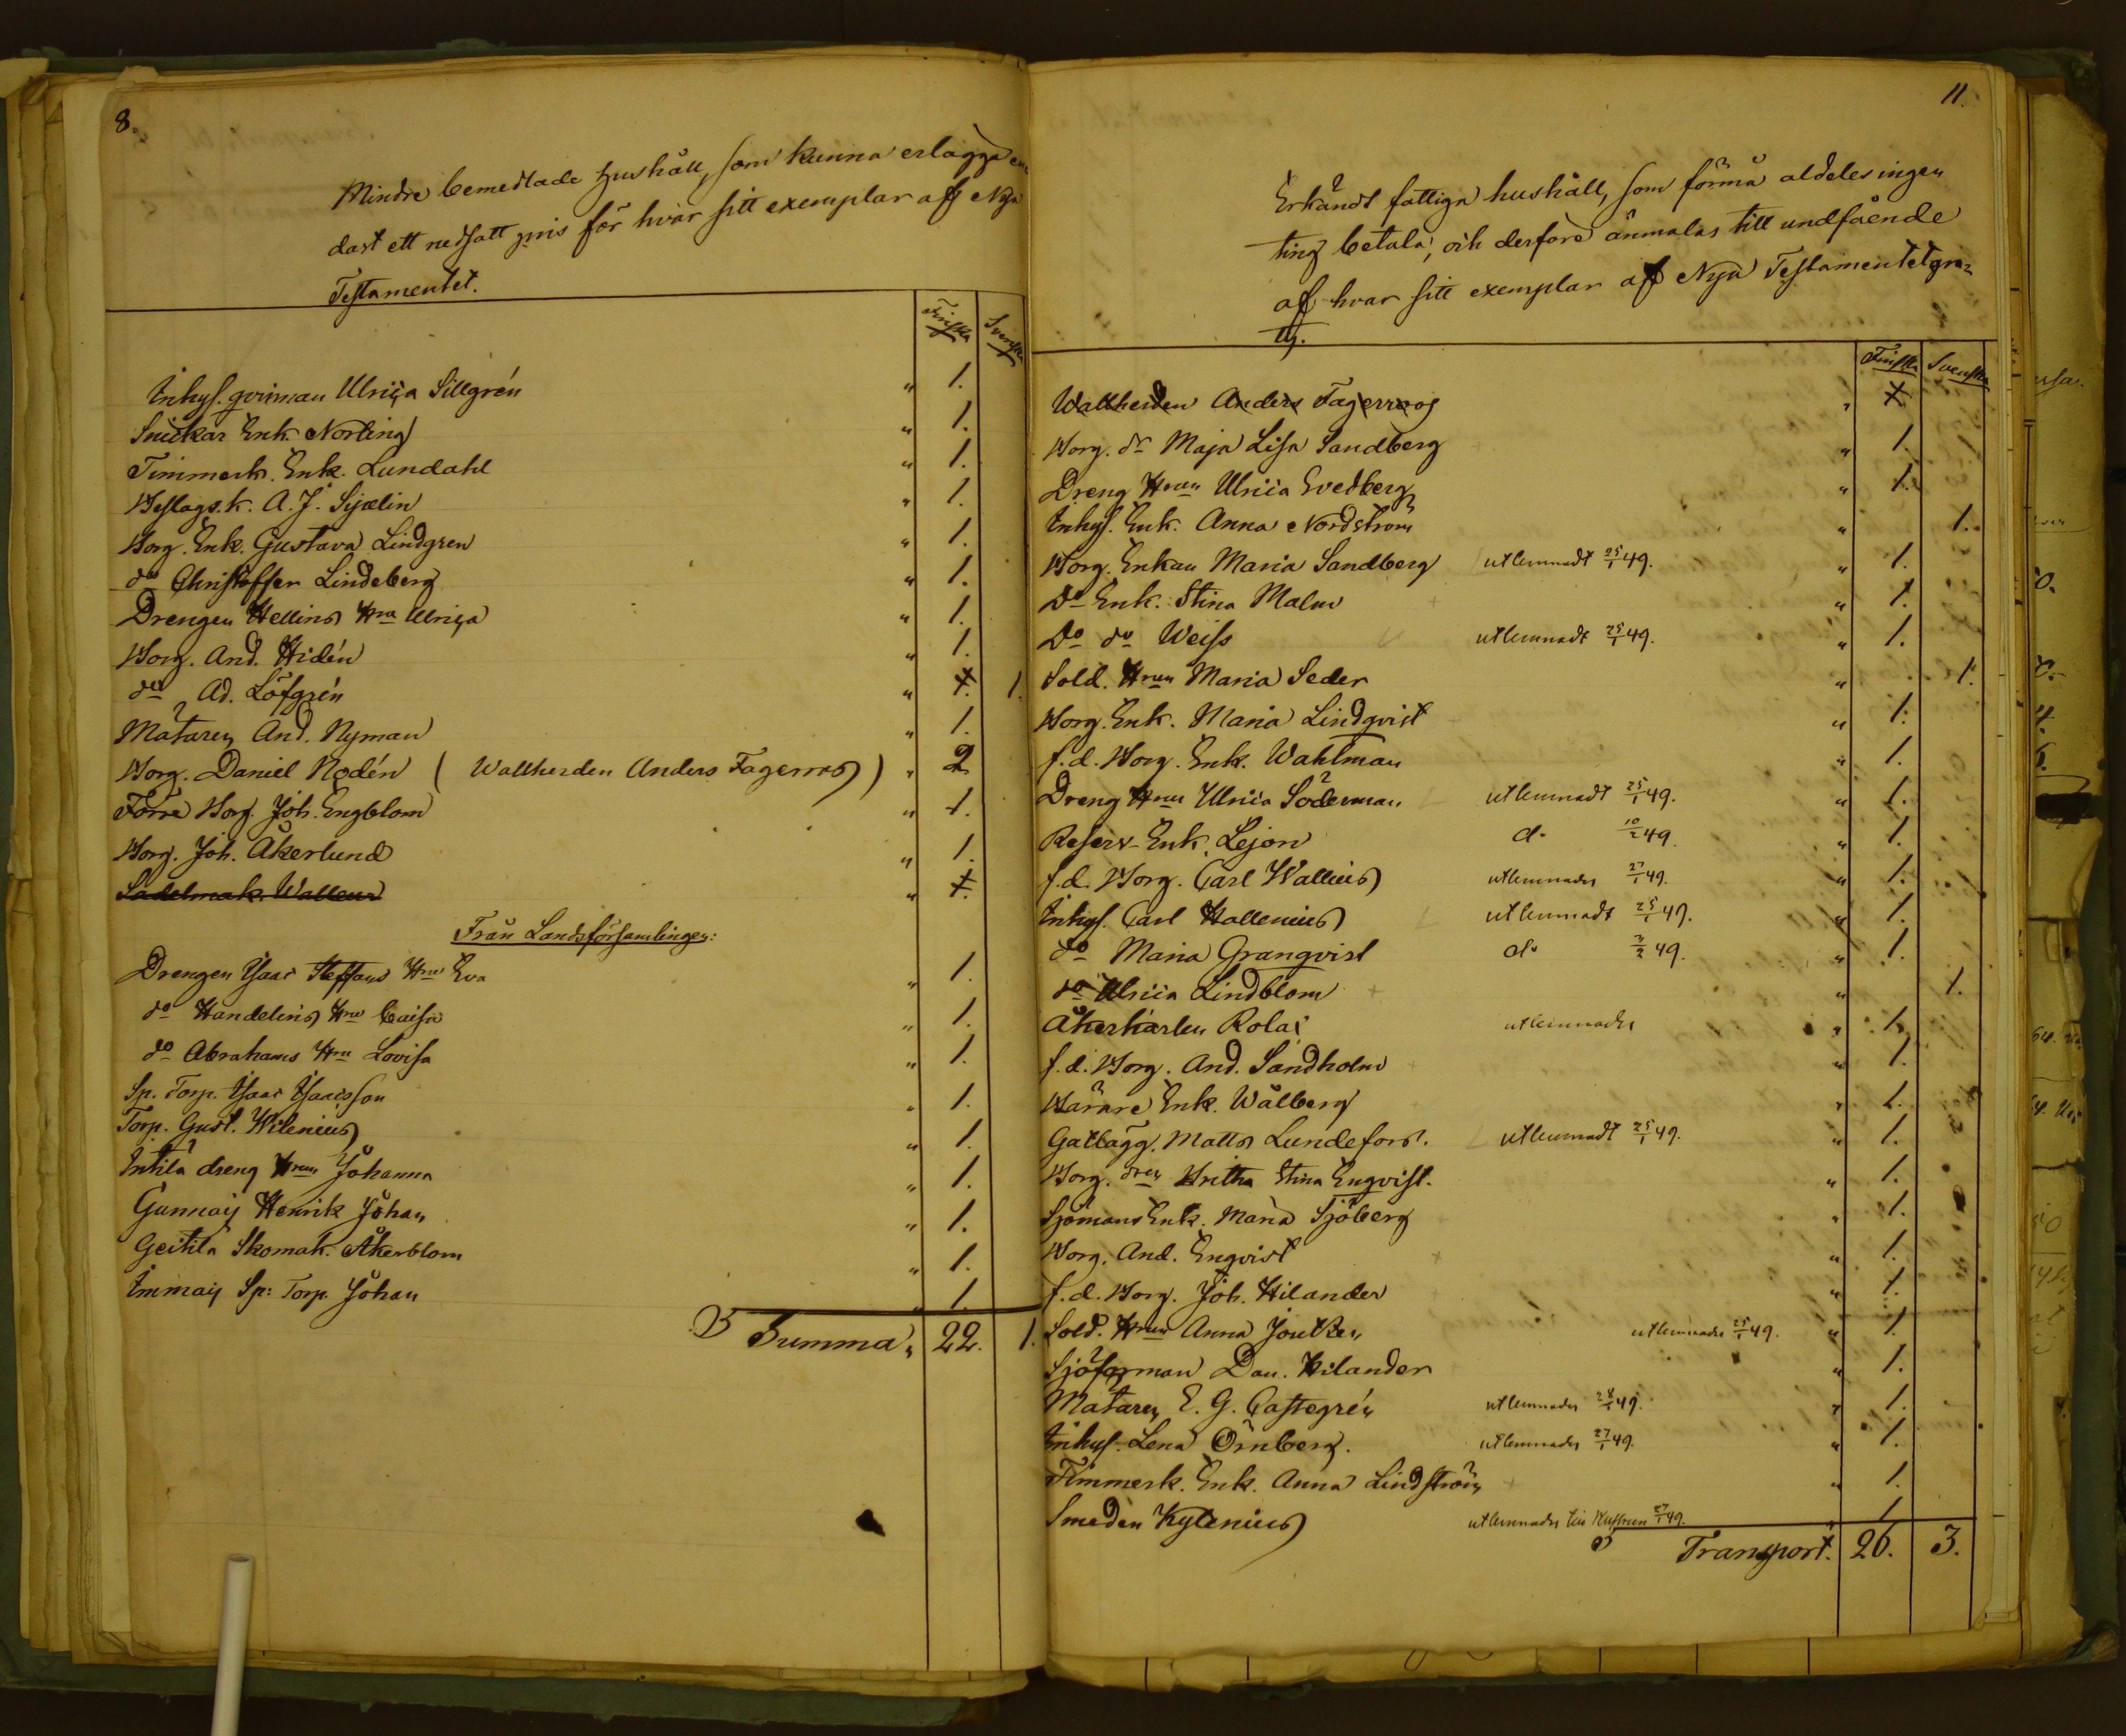 8.
Mindre bemedlade Hushåll, som kunna erlägga en
dast ett nedsatt pris för hvar sitt exemplar af Nya
Testamentet.
Finska Svenska
Inhys. qvinnan Ulrica Sillgrén " 1.
Snickar Enk. Norling " 1.
Timmerk. Enk. Lundahl " 1.
Beslags.k. A. J. Sjælin " 1.
Borg. Enk. Gustava Lindgren " 1.
do Christoffer Lindeberg " 1.
Drengen Hellins Hru Ulrica " 1.
Borg. And. Hidén " 1.
do Ad. Löfgrén " 1. 1.
Mätaren And. Nyman " 1.
Borg. Daniel Nodén ( Wallherden Anders Fagerroos ) " 2
Förre Borg. Joh. Engblom " 1.
Borg. Joh. Åkerlund " 1.
Sadelmak. Wallenius " 1.
Från Landsförsamlingen:
Drengen Isaac Steffans Hru Eva " 1.
do Handelins Hru Caisa " 1.
do Abrahams Hru Lovisa " 1.
Sp. Torp. Isaac Isaacsson " 1.
Torp. Gust. Wilenius " 1.
Inkilä dreng Hrun Johanna " 1.
Gunnais Henrik Johan " 1.
Geitila Skomak. Åkerblom " 1.
Immais Sp: Torp. Johan " 1.
Summa " 22. 1.
11.
Erkändt fattiga hushåll, som förmå aldeles ingen
ting betala, och derföre anmälas till undfående
af hvar sitt exemplar af Nya Testamentet gra=
tis.
Finska Svenska
Wallherden Anders Fagerroos " 1.
Borg. dr Maja Lisa Sandberg " 1.
Dreng Hrun Ulrica Svedberg " 1.
Inhys. Enk. Anna Nordström " 1.
Borg. Enkan Maria Sandberg utlemnadt 25/1 49. " 1.
Do Enk. Stina Malm " 1.
Do do Weiss utlemnadt 25/1 49. " 1.
Sold. Hrun Maria Seder " 1.
Borg. Enk. Maria Lindqvist " 1.
f.d. Borg. Enk. Wahlman " 1.
Dreng Hrun Ulrica Söderman utlemnadt 25/1 49. " 1.
Reserv. Enk. Lejon do 10/2 49. " 1.
f.d. Borg. Carl Wallenius utlemnades 27/1 49. " 1.
Inhys. Carl Hallenius utlemnadt 25/1 49. " 1.
do Maria Granqvist do 3/2 49. " 1.
do Ulrica Lindblom " 1.
Åkerkarlen Rolac utlemnades " 1.
f.d. Borg. And. Sandholm " 1.
Bärare Enk. Wålberg " 1.
Gatlägg. Matts Lundefors. utlemnadt 25/1 49. " 1.
Borg. drn Britha Stina Enqvist. " 1.
Sjömans Enk. Maria Sjöberg " 1.
Borg. And. Enqvist " 1.
f.d. Borg. Joh. Hilander " 1.
Sold. Hrun Anna Joutzen utlemnades 25/1 49. " 1.
Sjöforman Dan. Kilander " 1.
Mätaren E. G. Castegrén utlemnades 28/1 49. " 1.
Inhys. Lena Örnberg. utlemnades 27/1 49. " 1.
Timmerk. Enk. Anna Lindström " 1.
Smeden Kylenius utlemnades till Hustrun 27/1 49. " 1.
Transport. 26. 3.